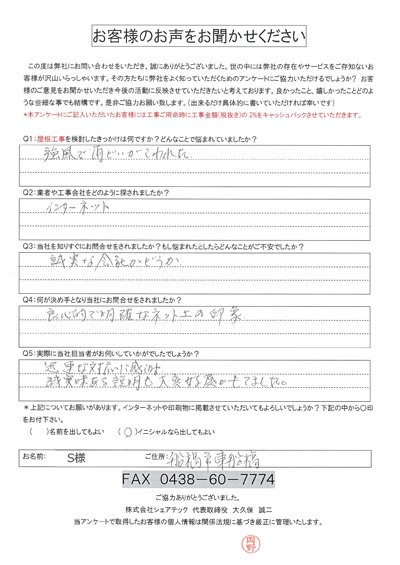 お客様のお声をお聞かせください
この度は弊社にお問い合わせをいただき、誠にありがとうございました。世の中には弊社の存在やサービスをご存知ないお
客様が沢山いらっしゃいます。その方たちに弊社をよく知っていただくためのアンケートにご協力いただけるでしょうか？ お客
様のご意見をお聞かせいただき今後の活動に反映させていただきたいと考えております。良かったこと、嬉しかったことどのよ
うな些細な事でも結構です。是非ご協力お願い致します。（出来るだけ具体的に書いていただければ幸いです）
*本アンケートにご記入いただいたお客様には工事ご用命時に工事金額(税抜き)の 2%をキャッシュバックさせていただきます。
Q1：屋根工事を検討したきっかけは何ですか？どんなことで悩まれていましたか？
強風で雨どいがこわれた
Q2：業者や工事会社をどのように探されましたか？
インターネット
Q3：当社を知りすぐにお問合せをされましたか？もし悩まれたとしたらどんなことがご不安でしたか？
誠実な会社かどうか
Q4：何が決め手となり当社にお問合せをされましたか？
良心的で明確なネット上の印象
Q5：実際に当社担当者がお伺いしていかがでしたでしょうか？
迅速な対応に感謝
誠実味ある説明も大変好感がもてました。
*上記についてお願いがあります。インターネットや印刷物に掲載させていただいてもよろしいでしょうか？下記の中から〇印
をお付下さい。
（　）名前を出してもよい　（〇）イニシャルなら出してもよい
お名前： S様 ご住所： 船橋市東船橋
FAX 0438-60-7774
ご協力ありがとうございました。
株式会社シェアテック 代表取締役 大久保 誠二
当アンケートで取得したお客様の個人情報は関係法規に基づき厳正に管理いたします。
岡野